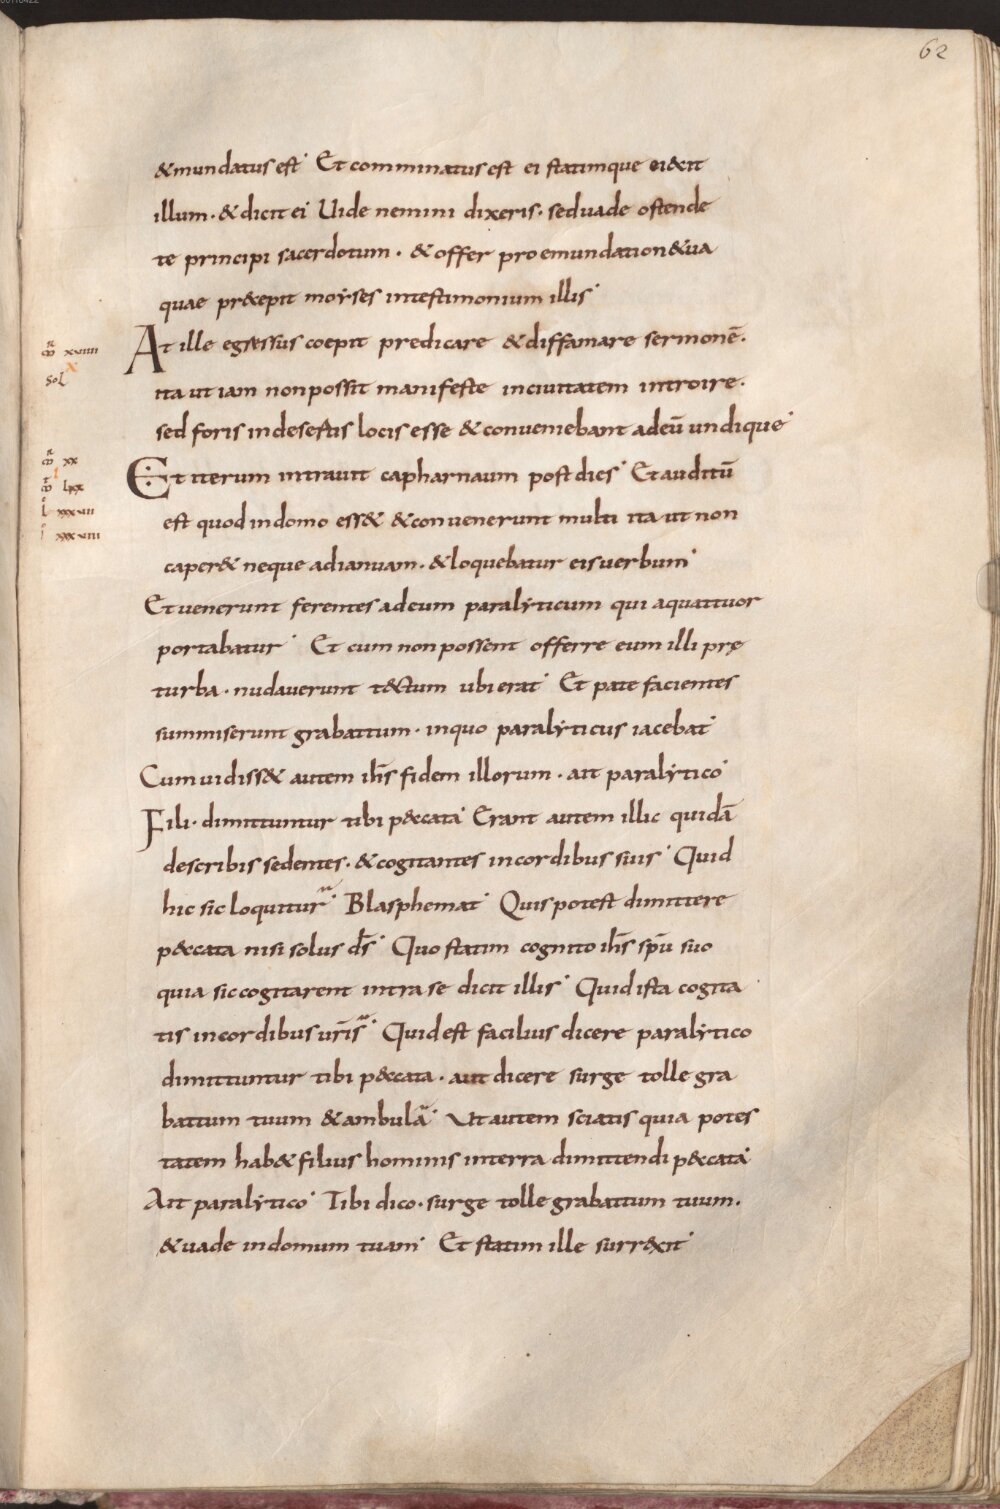 62
&mundatus est Et comminatus est ei statimque eiecit
illum · & dicit ei Uide nemini dixeris · sed uade ostende
te principi sacerdotum · & offer pro emundation&ua
quae pr&cepit moyses intestimonium illis
At ille egressus coepit predicare & diffamare sermonē·
ita ut iam non possit manifeste inciuitatem introire ·
sed foris indesertis locis esse & conueniebant adeū undique
Et iterum intrauit capharnaum post dies Et auditū
est quod indomo ess& & conuenerunt multi ita ut non
caper& neque adianuam · & loquebatur eis uerbum
Et uenerunt ferentes ad eum paralyticum qui aquattuor
portabatur Et cum non possent offerre eum illi prę
turba · nudauerunt t&ctum ubi erat Et patefacientes
summiserunt grabattum · inquo paralyticus iacebat
Cum uidiss& autem ih̄s fidem illorum · ait paralytico
Fili · dimittuntur tibi p&ccata Erant autem illic quidā
de scribis sedentes · & cogitantes incordibus suis Quid
hic sic loquitur Blasphemat Quis potest dimittere
p&ccata nisi solus d̄s Quo statim cognito ih̄s sp̄u suo
quia sic cogitarent intra se dicit illis Quid ista cogita
tis incordibus ur̄is Quid est facilius dicere paralytico
dimittuntur tibi p&ccata · aut dicere surge tolle gra
battum tuum & ambula Ut autem sciatis quia potes
tatem hab& filius hominis interra dimittendi p&ccata
Ait paralytico Tibi dico · surge tolle grabattum tuum ·
& uade indomum tuam Et statim ille surrexit
xuiiii
x
sol
xx
i
lxx
l xxxuii
i xxxuiii